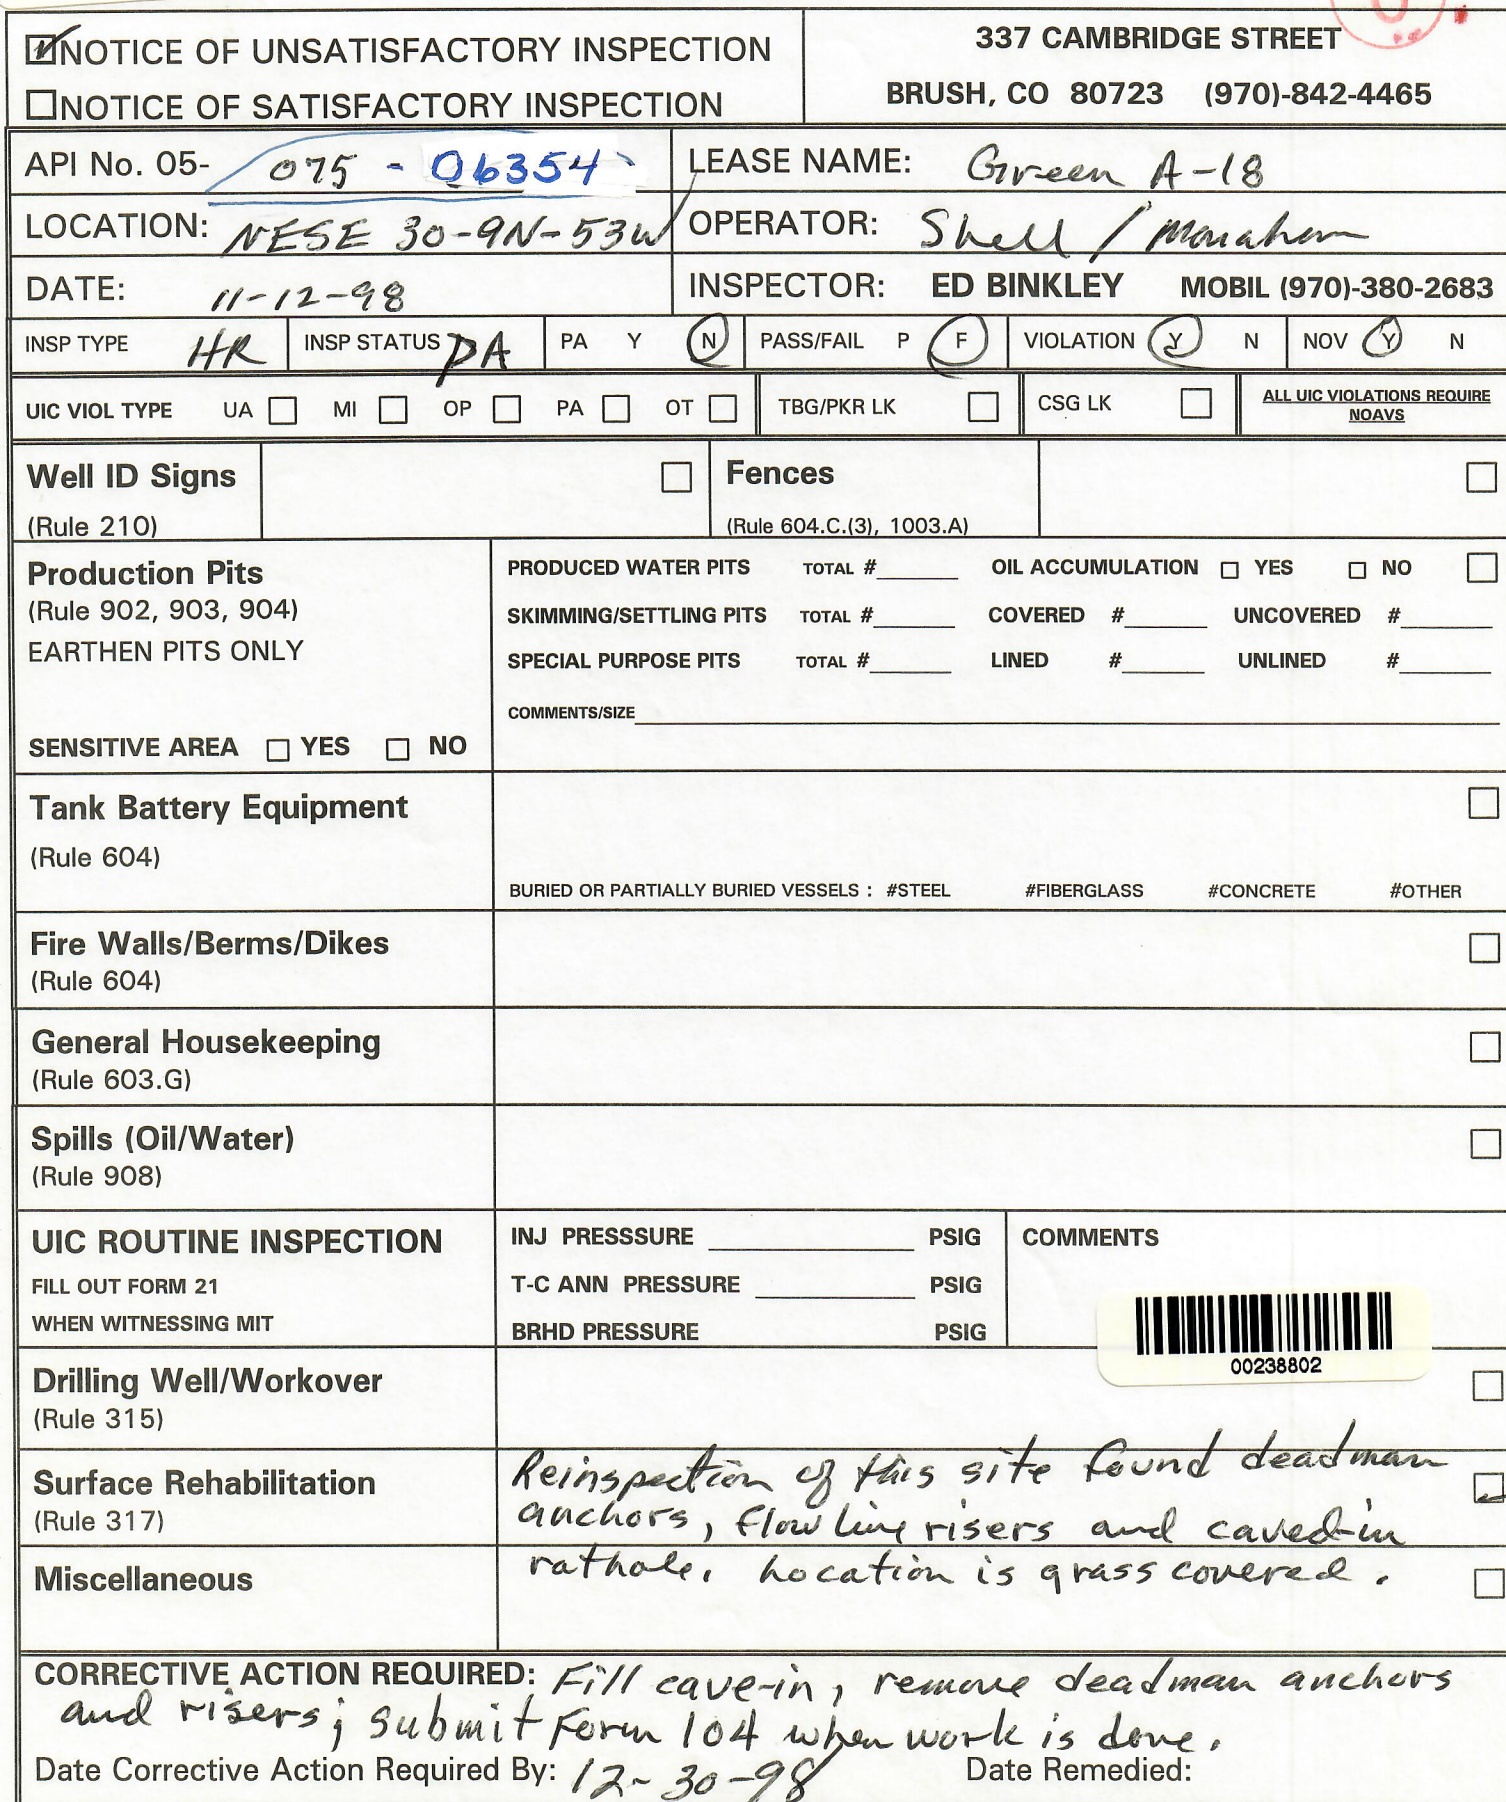 NOTICE OF UNSATISFACTORY INSPECTION
337 CAMBRIDGE STREET
NOTICE OF SATISFACTORY INSPECTION
BRUSH, CO 80723 (970)-842-4465
API No. 05- 075 - 06354
LEASE NAME: Green A-18
LOCATION: NESE 30-9N-53W
OPERATOR: Shell / Monahan
DATE: 11-12-98
INSPECTOR: ED BINKLEY MOBIL (970)-380-2683
INSP TYPE HR INSP STATUS PA PA Y N PASS/FAIL P F VIOLATION Y N NOV Y N
UIC VIOL TYPE UA MI OP PA OT TBG/PKR LK CSG LK ALL UIC VIOLATIONS REQUIRE
NOAVS
Well ID Signs
(Rule 210)
Fences
(Rule 604.C.(3), 1003.A)
Production Pits
(Rule 902, 903, 904)
EARTHEN PITS ONLY
SENSITIVE AREA YES NO
PRODUCED WATER PITS TOTAL # OIL ACCUMULATION YES NO
SKIMMING/SETTLING PITS TOTAL # COVERED # UNCOVERED #
SPECIAL PURPOSE PITS TOTAL # LINED # UNLINED #
COMMENTS/SIZE
Tank Battery Equipment
(Rule 604)
BURIED OR PARTIALLY BURIED VESSELS : #STEEL #FIBERGLASS #CONCRETE #OTHER
Fire Walls/Berms/Dikes
(Rule 604)
General Housekeeping
(Rule 603.G)
Spills (Oil/Water)
(Rule 908)
UIC ROUTINE INSPECTION
FILL OUT FORM 21
WHEN WITNESSING MIT
INJ PRESSSURE PSIG
T-C ANN PRESSURE PSIG
BRHD PRESSURE PSIG
COMMENTS
00238802
Drilling Well/Workover
(Rule 315)
Surface Rehabilitation
(Rule 317)
Reinspection of this site found deadman
anchors, flow line risers and caved-in
rathole. Location is grass covered.
Miscellaneous
CORRECTIVE ACTION REQUIRED: Fill cave-in, remove deadman anchors
and risers; submit Form 104 when work is done.
Date Corrective Action Required By: 12-30-98 Date Remedied: